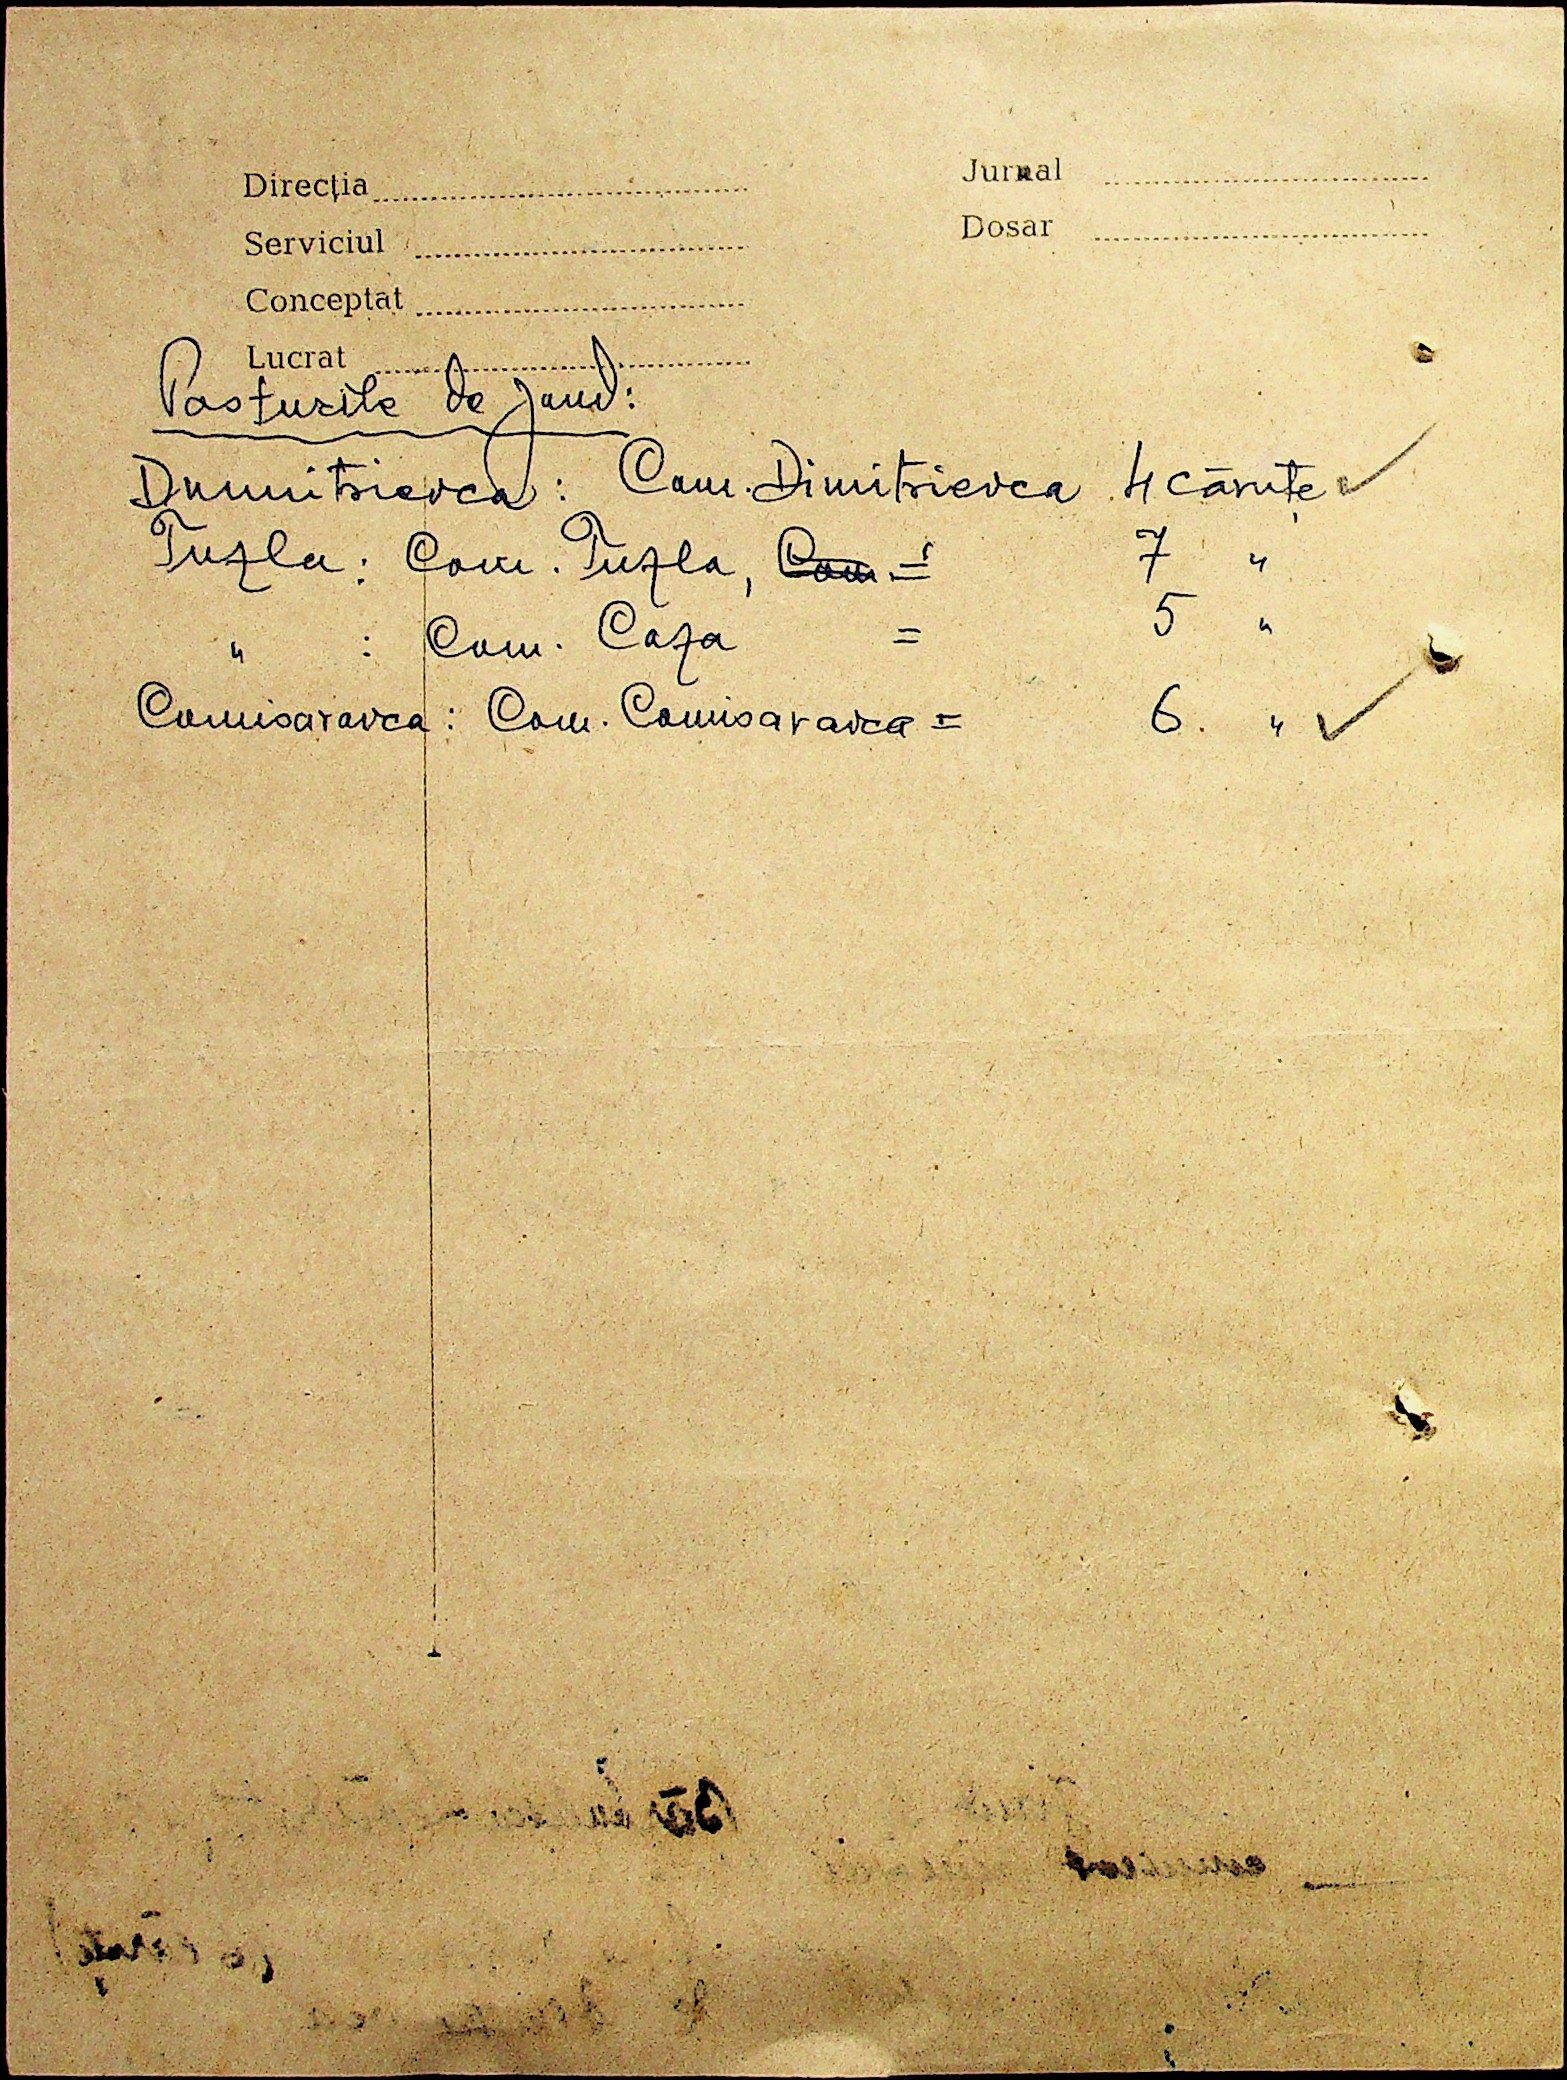 Direcția
Jurnal
Serviciul
Dosar
Conceptat
Lucrat
Posturile de Jand:
Dumitrievca: Com. Dimitrievca 4 căruțe ✓
Tuzla: Com. Tuzla, Com. = 7 "
" : Com. Caza = 5 "
Comisaravca: Com. Comisaravca = 6. " ✓